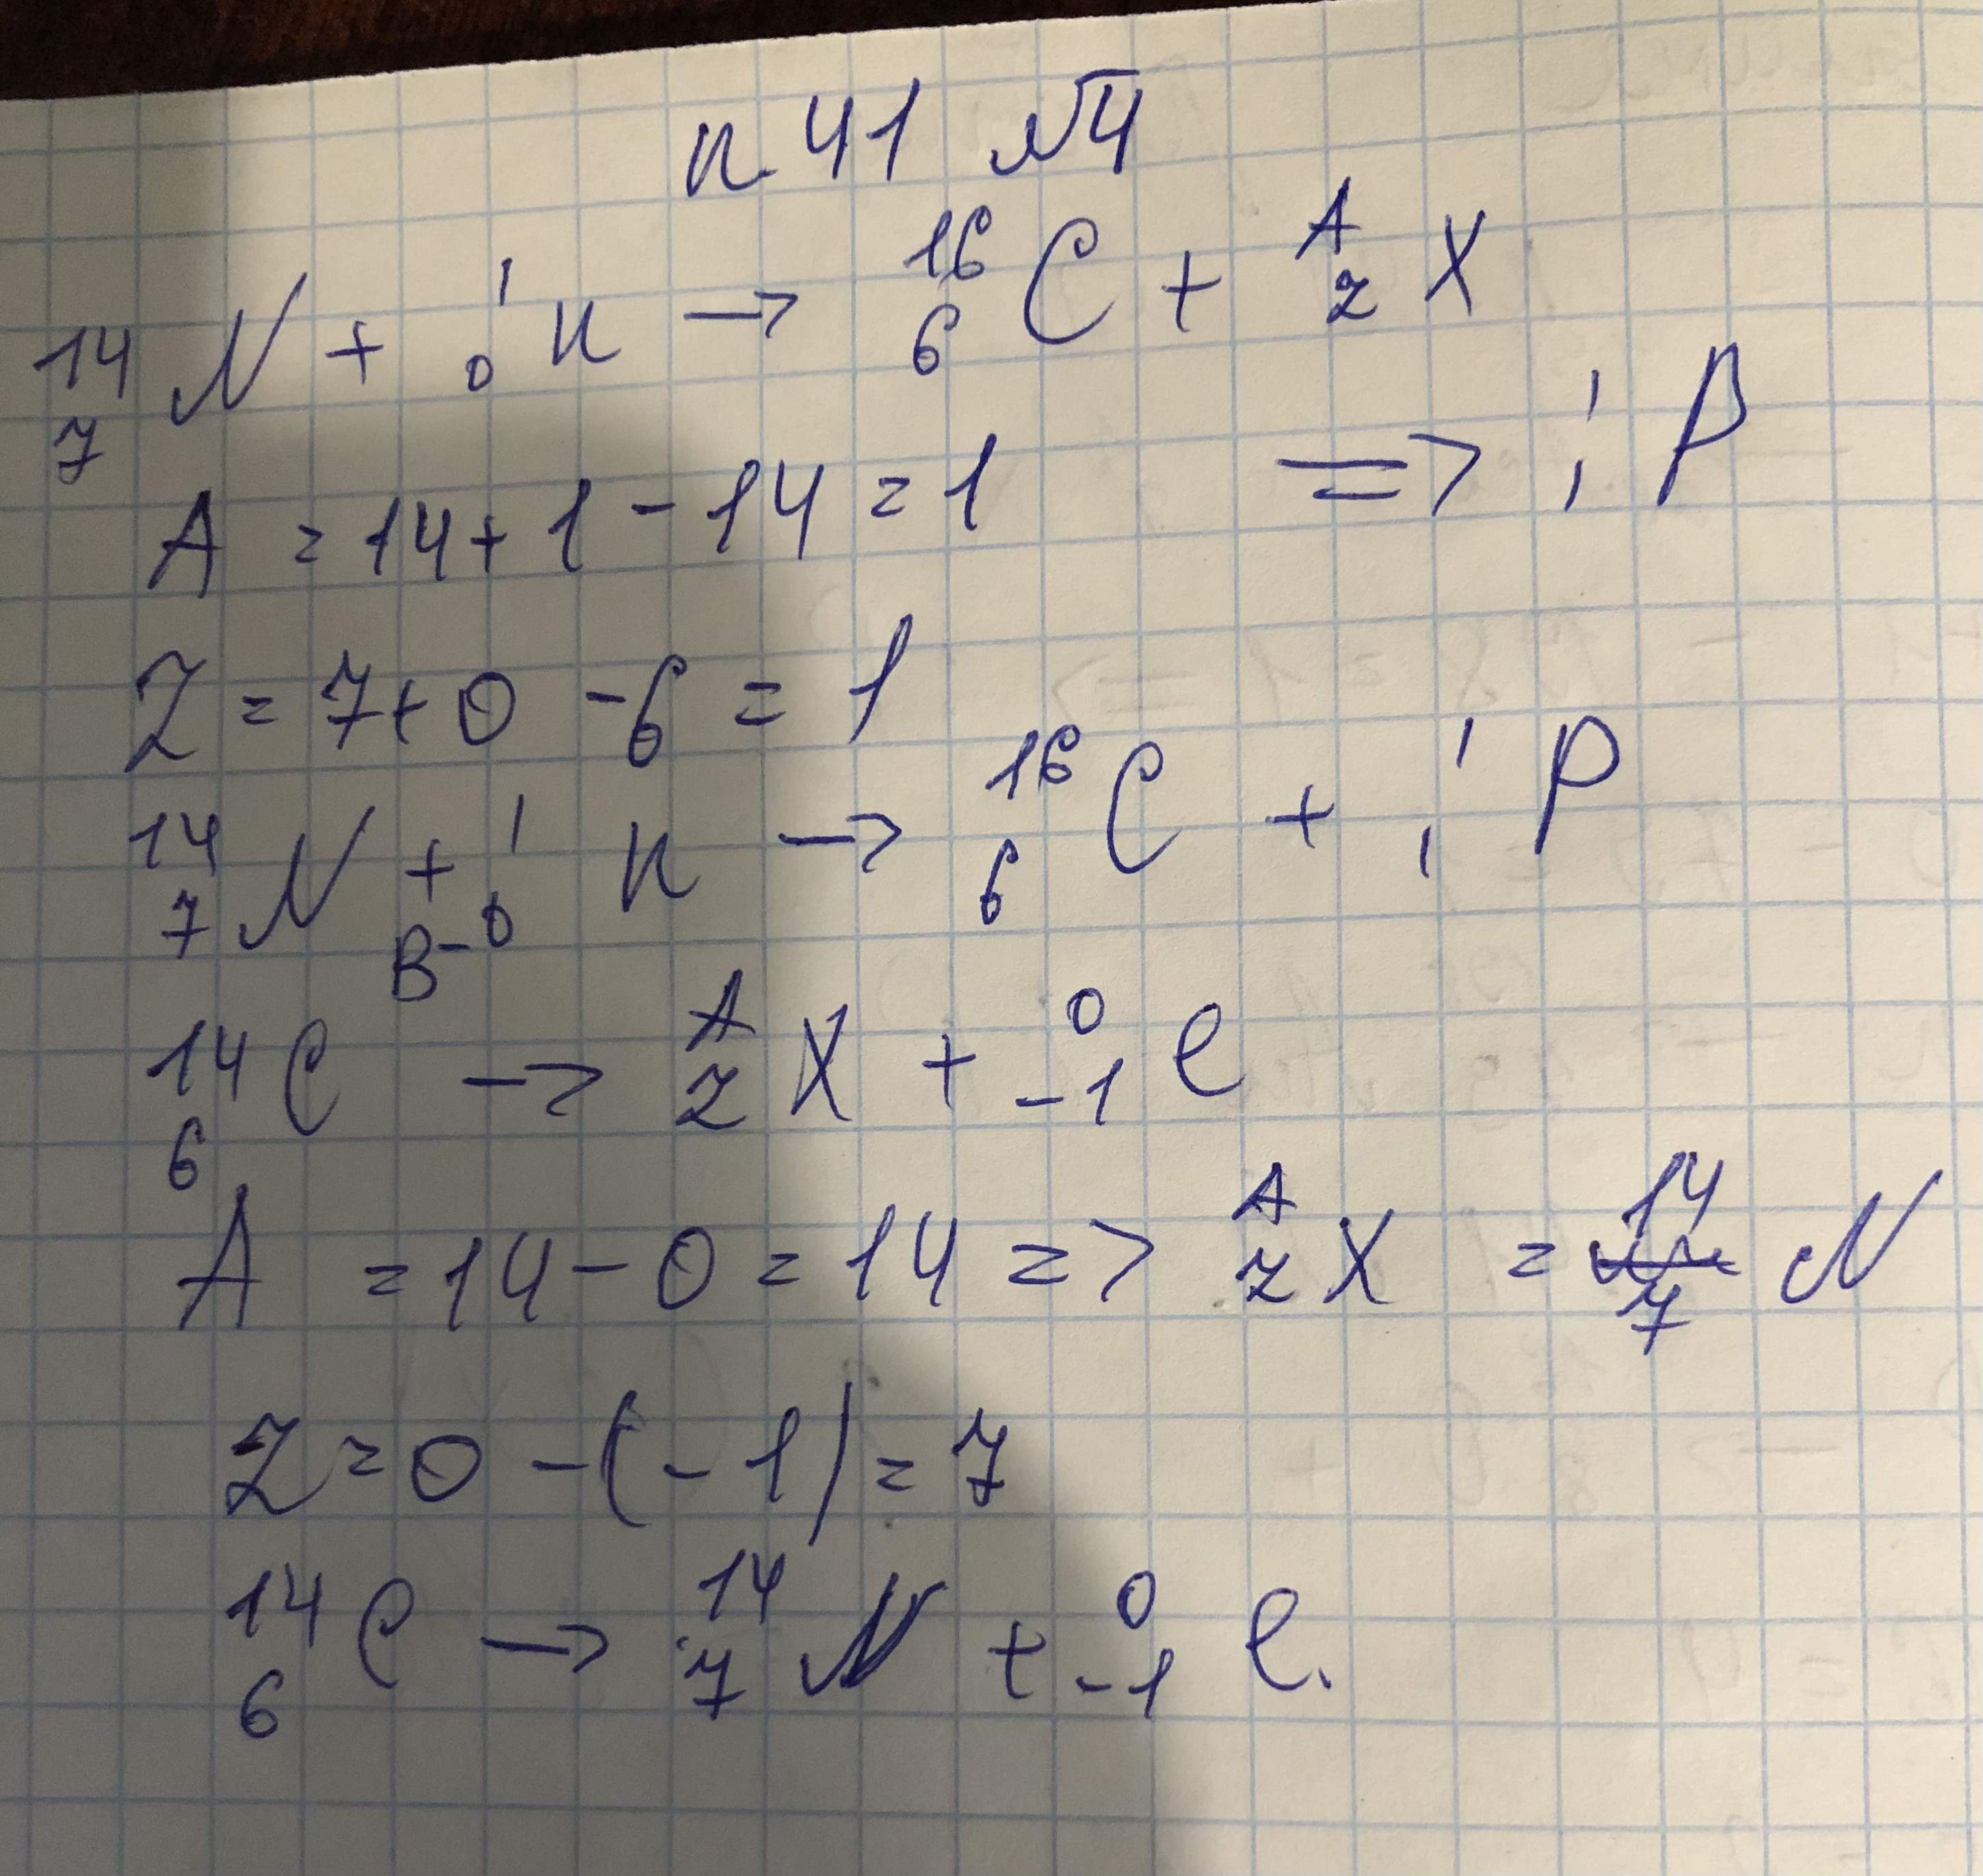 п. 41 №4
¹⁴₇N + ¹₀n → ¹⁶₆C + ᴬ_Z X
A = 14 + 1 - 14 = 1 => ¹₁P
Z = 7 + 0 - 6 = 1
¹⁴₇N + ¹₀n → ¹⁶₆C + ¹₁P
B-
¹⁴₆C → ᴬ_Z X + ⁰₋₁e
A = 14 - 0 = 14 => ᴬ_Z X = ¹⁴₇N
Z = 0 - (-1) = 7
¹⁴₆C → ¹⁴₇N + ⁰₋₁e.